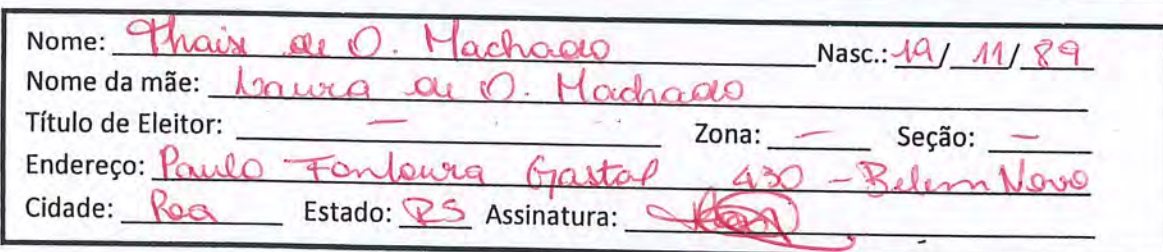 Nome: Thais de O. Machado Nasc.: 19/ 11/ 89
Nome da mãe: Laura de O. Machado
Título de Eleitor: — Zona: — Seção: —
Endereço: Paulo Fontoura Gastal 430 - Belem Novo
Cidade: Poa Estado: RS Assinatura: